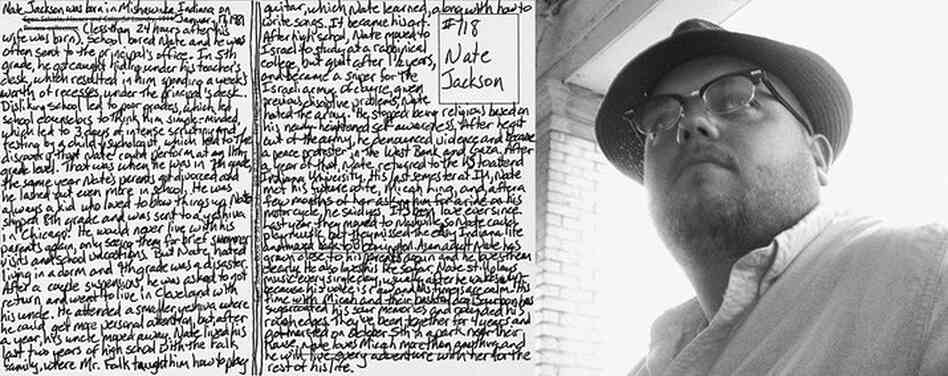 Nate Jackson was born in Mishawaka, Indiana on
January 17, 1981
(less than 24 hours after his
wife was born). School bored Nate and he was
often sent to the principal's office. In 5th
grade, he got caught hiding under his teacher's
desk, which resulted in him spending a week's
worth of recesses under the principal's desk.
Disliking school led to poor grades, which led
school counselors to think him simple-minded,
which led to 3 days of intense scrutiny and
testing by a child psychologist, which led to the
discovery that Nate could perform at an 11th
grade level. That was when he was in 7th grade,
the same year Nate's parents got divorced and
he lashed out even more in school. He was
always a kid who loved to blow things up. Nate
skipped 8th grade and was sent to a yeshiva
in Chicago. He would never live with his
parents again, only seeing them for brief summer
visits and school vacations. But Nate hated
living in a dorm and 9th grade was a disaster.
After a couple suspensions, he was asked to not
return and went to live in Cleveland with
his uncle. He attended a smaller yeshiva where
he could get more personal attention, but after
a year, his uncle moved away. Nate lived his
last two years of high school with the Falk
family, where Mr. Falk taught him how to play
guitar, which Nate learned, along with how to
write songs. It became his art.
After high school, Nate moved to
Israel to study at a rabbinical
college, but quit after 1 1/2 years,
and became a sniper for the
Israeli army. Of course, given
previous discipline problems, Nate
hated the army. He stopped being religious based on
his newly heightened self-awareness. After he got
out of the army, he denounced violence and became
a peace protester in the West Bank and Gaza. After
a year of that, Nate returned to the US to attend
Indiana University. His last semester at IU, Nate
met his future wife, Micah Ling, and after a
few months of her asking him for a ride on his
motorcycle, he said yes. It's been love ever since.
Last year they moved to Nashville so Nate could
play music, but they missed the easy Indiana life
and moved back to Bloomington. As an adult Nate has
grown close to his parents again and he loves them
dearly. He also loves his life so far. Nate still plays
music every single day, usually after he wakes up
because his voice is raw and his times are calm. His
time with Micah and their basset dog Bourbon has
sugarcoated his sour memories and rounded his
rough edges. They've been together for 4 years and
got married on October 5th in a park near their
home. Nate loves Micah more than anything and
he will live every adventure with her for the
rest of his life.
#718
Nate
Jackson